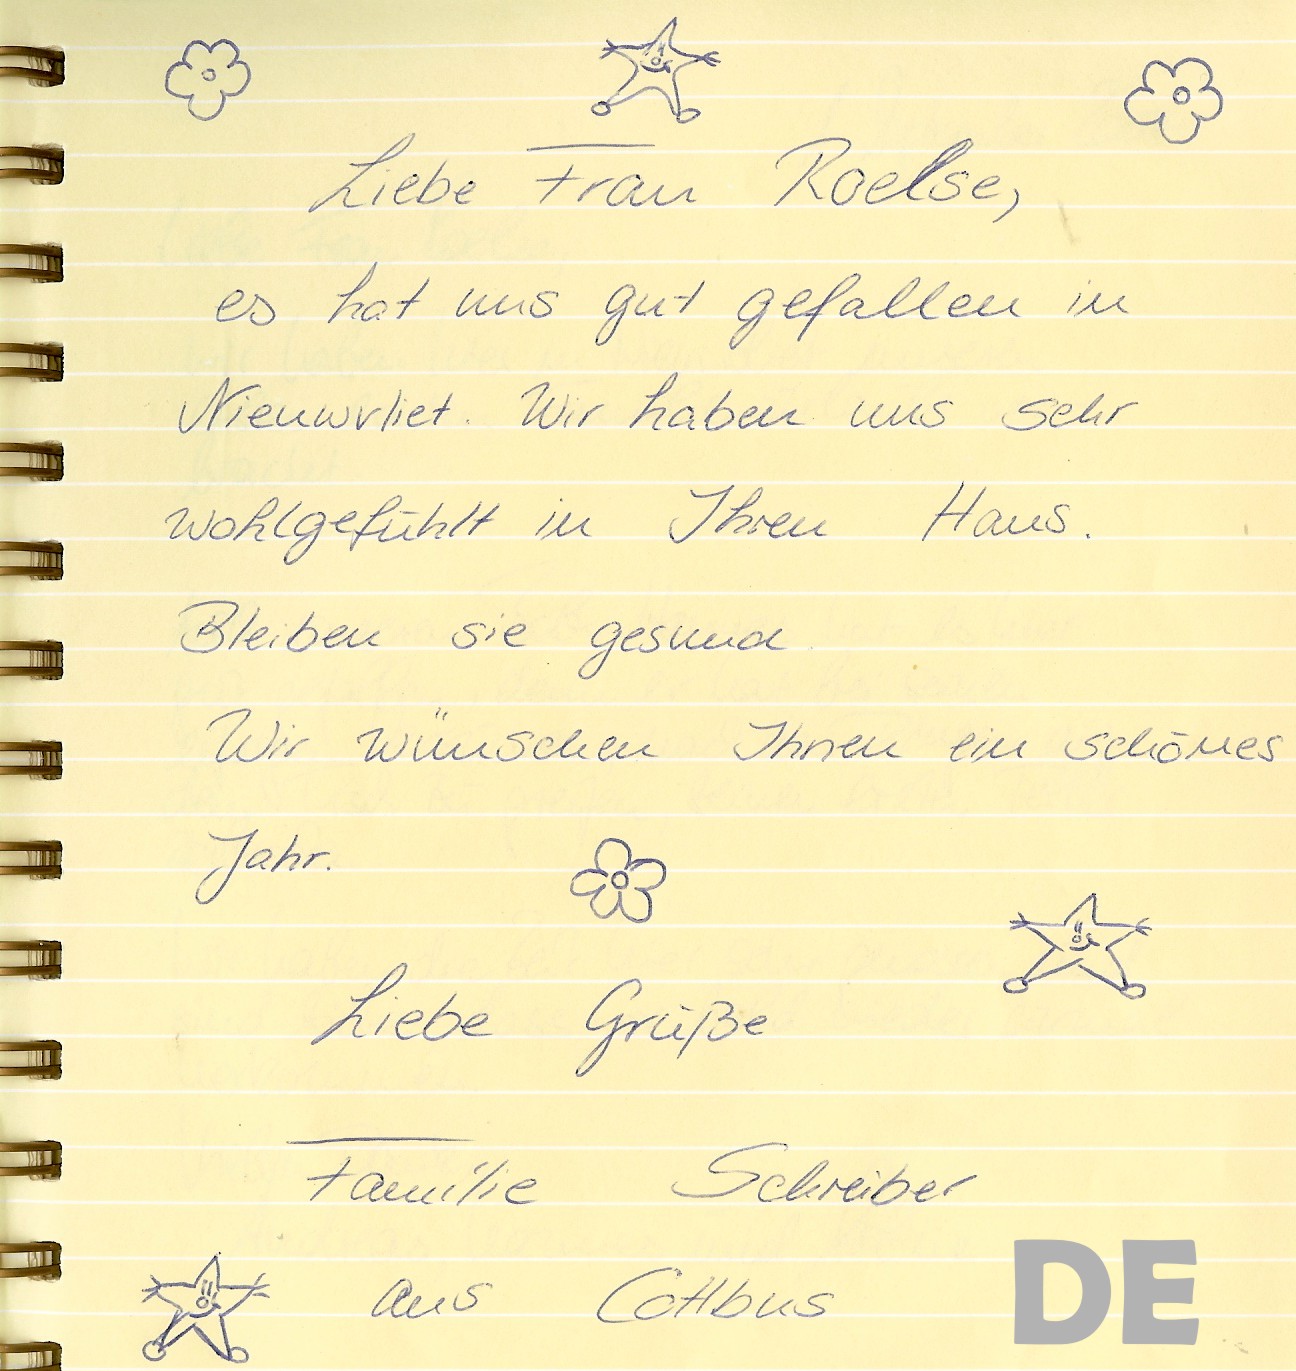 Liebe Frau Roelse,
es hat uns gut gefallen in
Nieuwvliet. Wir haben uns sehr
wohlgefühlt in Ihren Haus.
Bleiben sie gesund
Wir wünschen Ihnen ein schönes
Jahr.
Liebe Grüße
Familie Schreiber
aus Cottbus
DE